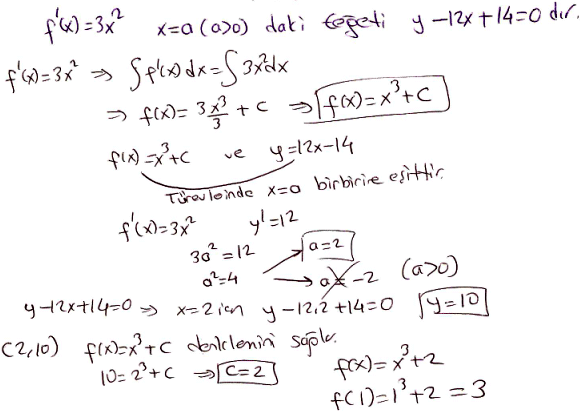 f'(x)=3x² x=a (a>0) daki teğeti y-12x+14=0 dır.
f'(x)=3x² ⇒ ∫f'(x)dx=∫3x²dx
⇒ f(x)= 3x³/3 + c ⇒ f(x)=x³+c
f(x)=x³+c ve y=12x-14
Türevleinde x=a birbirine eşittir.
f'(x)=3x² y'=12
3a²=12 a=2
a²=4 → a=-2 (a>0)
y-12x+14=0 ⇒ x=2 için y-12.2+14=0 y=10
(2,10) f(x)=x³+c denklemini sağlar.
10=2³+c ⇒ c=2 f(x)=x³+2
f(1)=1³+2=3